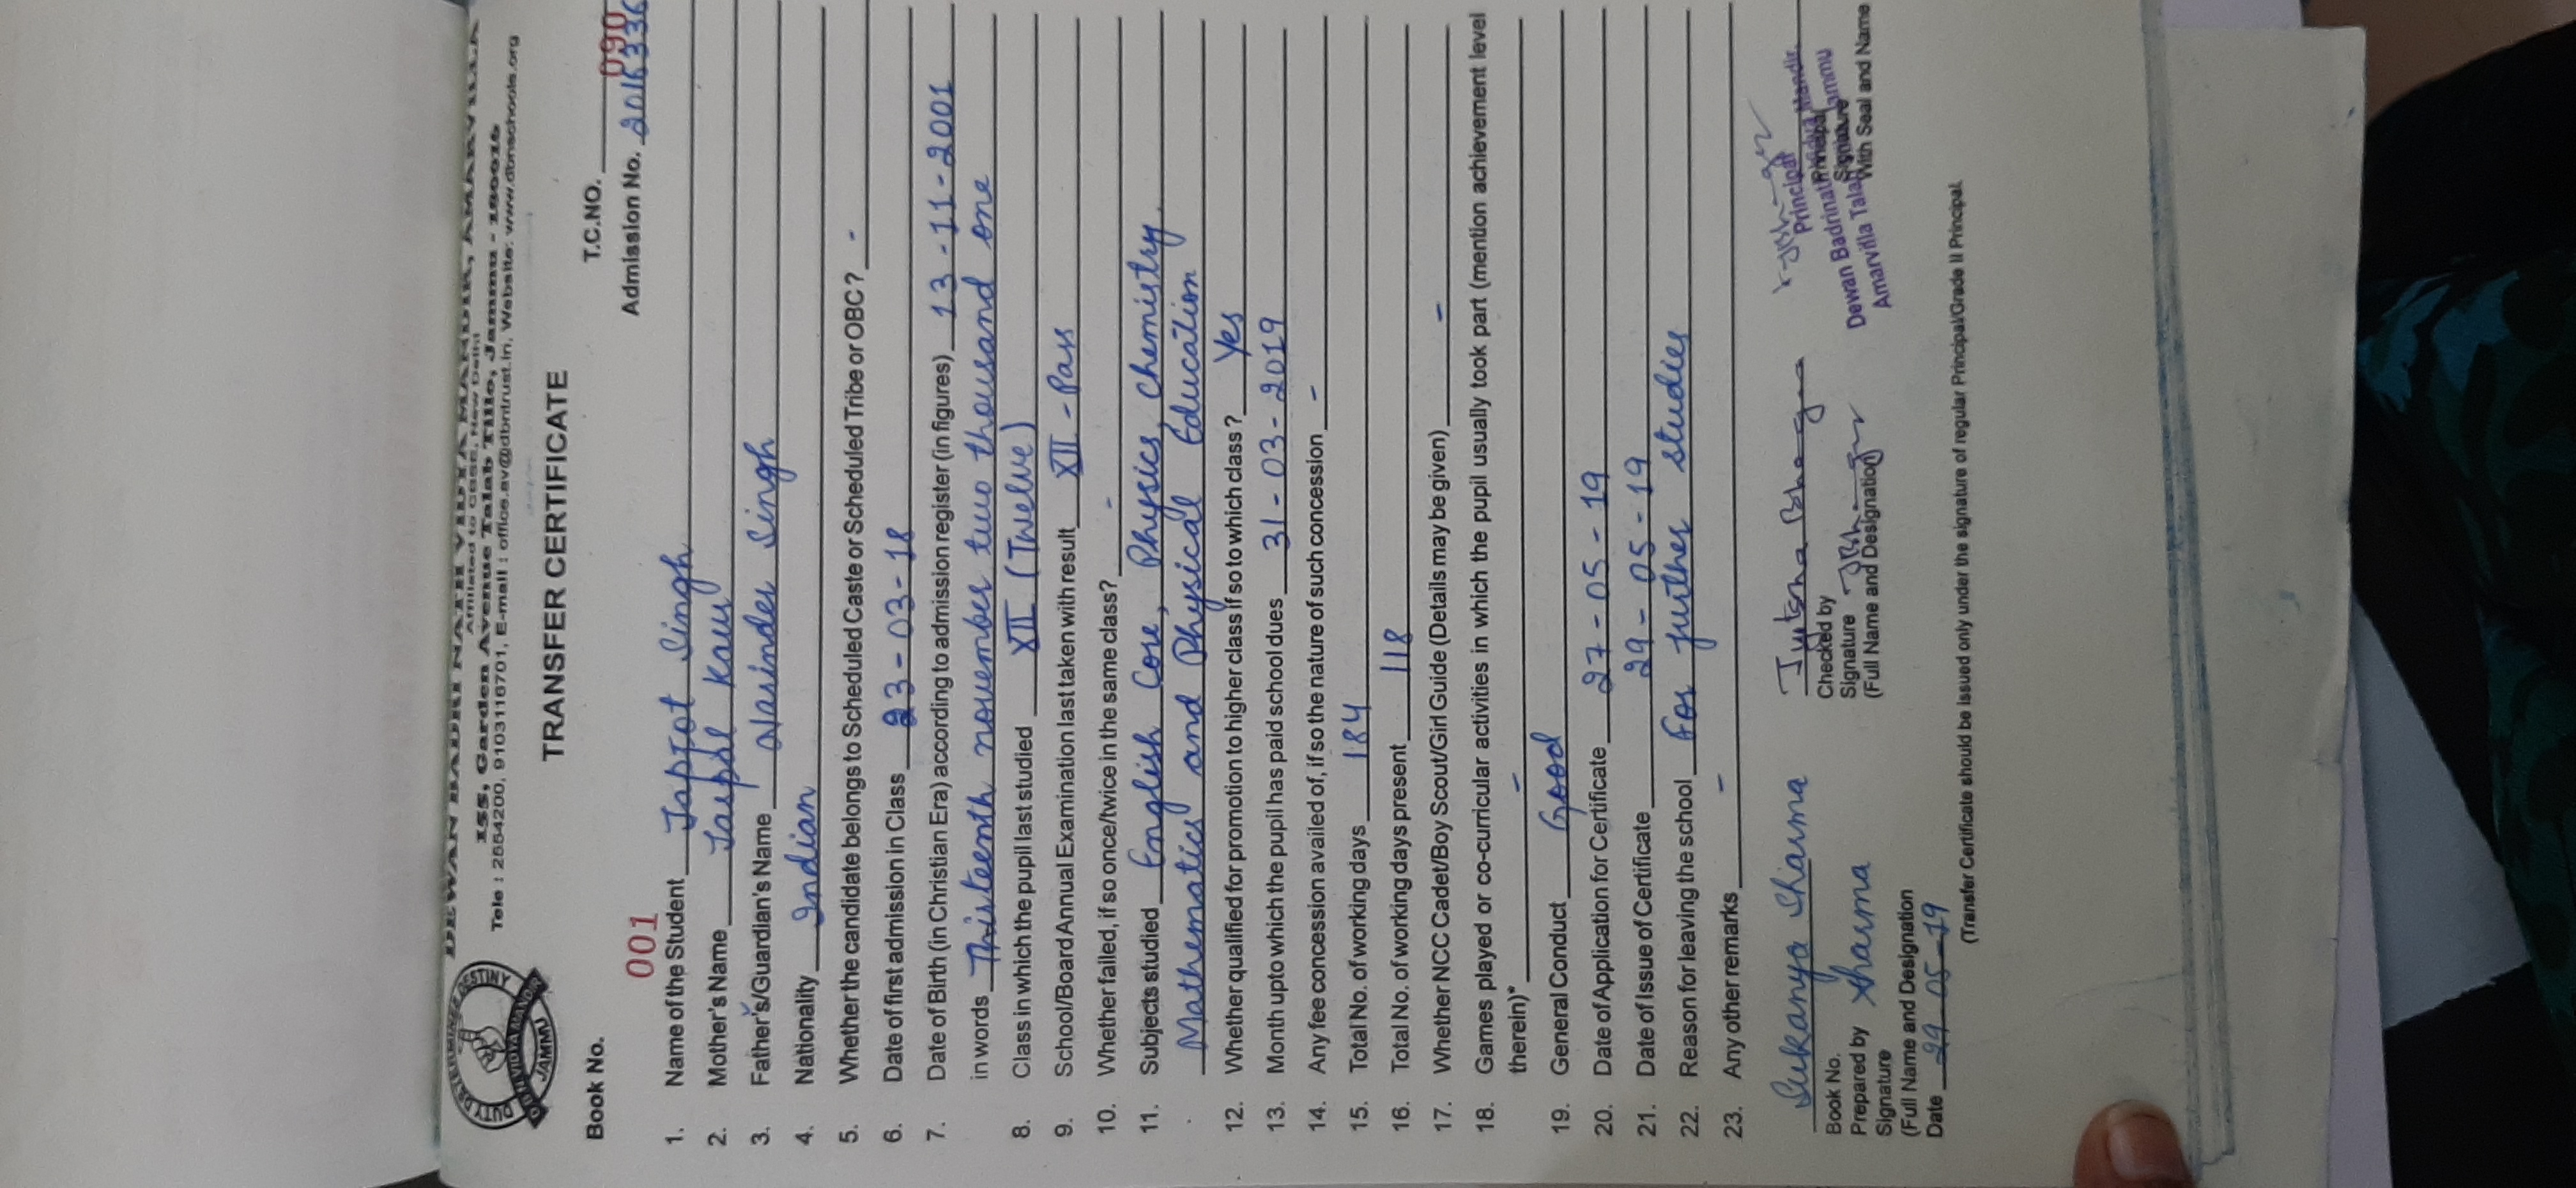 DEWAN BADRI NATH VIDYA MANDIR, AMARVILLA
Affiliated to CBSE, New Delhi
155, Garden Avenue Talab Tillo, Jammu - 180016
Tele : 2554200, 9103116701, E-mail : office.av@dbntrust.in, Website: www.dbnschools.org
DUTY DETERMINES DESTINY
JAMMU
TRANSFER CERTIFICATE
Book No. 001 T.C.NO. 090
Admission No. 2016336
1. Name of the Student Japjot Singh
2. Mother's Name Jaspal Kaur
3. Father's/Guardian's Name Narinder Singh
4. Nationality Indian
5. Whether the candidate belongs to Scheduled Caste or Scheduled Tribe or OBC? -
6. Date of first admission in Class 23-03-18
7. Date of Birth (in Christian Era) according to admission register (in figures) 13-11-2001
in words Thirteenth november two thousand one
8. Class in which the pupil last studied XII (Twelve)
9. School/Board Annual Examination last taken with result XII - Pass
10. Whether failed, if so once/twice in the same class? -
11. Subjects studied English Core, Physics, Chemistry,
Mathematics and Physical Education
12. Whether qualified for promotion to higher class if so to which class? Yes
13. Month upto which the pupil has paid school dues 31-03-2019
14. Any fee concession availed of, if so the nature of such concession -
15. Total No. of working days 184
16. Total No. of working days present 118
17. Whether NCC Cadet/Boy Scout/Girl Guide (Details may be given) -
18. Games played or co-curricular activities in which the pupil usually took part (mention achievement level
therein)* -
19. General Conduct Good
20. Date of Application for Certificate 27-05-19
21. Date of Issue of Certificate 29-05-19
22. Reason for leaving the school For further studies
23. Any other remarks -
Sukanya Sharma
Book No.
Prepared by
Signature Sharma
(Full Name and Designation
Date 29-05-19
Checked by
Signature
(Full Name and Designation)
Principal
Dewan Badrinath Vidya Mandir
Amarvilla Talab Jammu
Principal
Signature
With Seal and Name
(Transfer Certificate should be issued only under the signature of regular Principal/Grade II Principal.